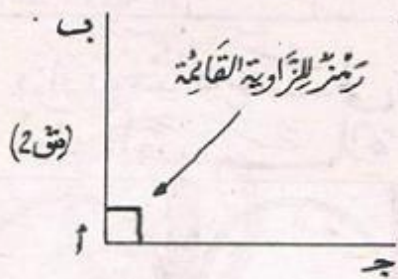 ب
رَمْزٌ لِلزَّاوِيَة القَائِمَة
2)
أ
جـ